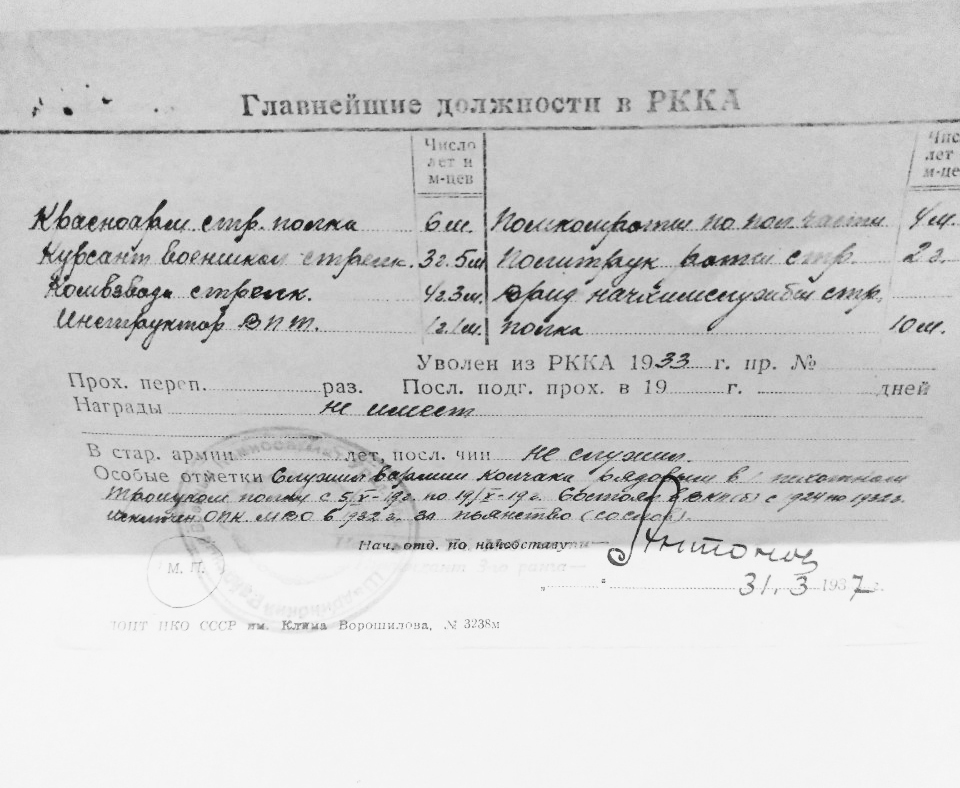 Главнейшие должности в РККА
Число лет и м-цев
Чис лет м-це
Красноарм стр. полка 6 м. Помкомроты по пол части 4 м.
Курсант военшкол стрелк. 3 г. 5 м Политрук роты стр. 2 г.
Комвзвода стрелк. 4 г. 3 м. Врид начхимслужбы стр.
Инструктор ВПТ. 1 г. 1 м. полка 10 м.
Уволен из РККА 1933 г. пр. №
Прох. переп. раз. Посл. подг. прох. в 19 г. дней
Награды не имеет
В стар. армии лет, посл. чин не служил.
Особые отметки Служил в армии Колчака рядовым в 1 пехотном
Троицком полку с 5/V-19 г. по 19/X-19 г. Состоял в ВКП(б) с 1924 по 1932 г.
исключен ОПК МВО в 1932 г. за пьянство
Нач. отд. по начсоставу
Антонов
М. П.
31. 3 1937 г.
НКО СССР им. Клима Ворошилова, № 3238м